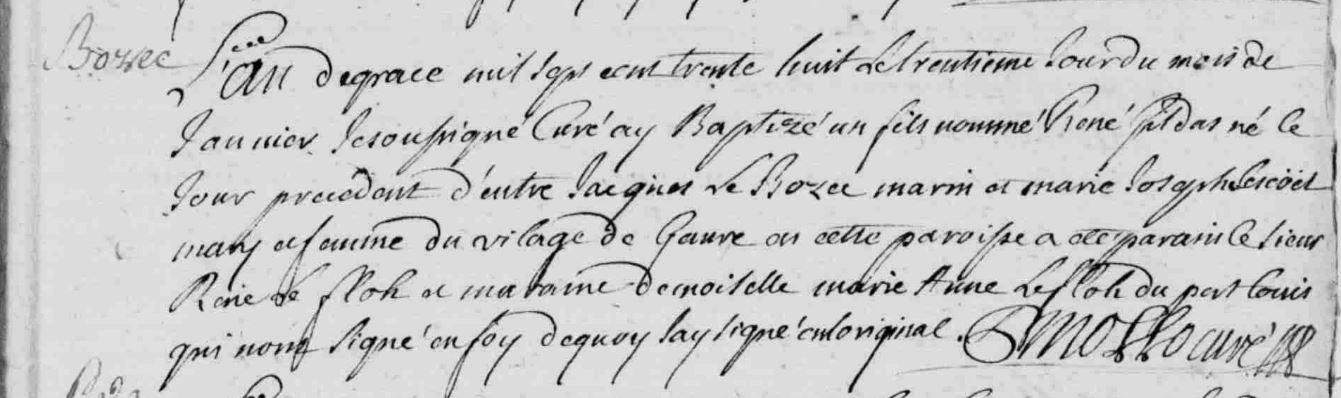 Bozec L'an de grace mil sept cent trente huit Le trentieme Jour du mois de
Janvier Je soussigné Curé ay Baptizé un fils nommé René Gildas né le
Jour precedent d'entre Jacques Le Bozec marin et marie Joseph Lescoët
mary et femme du vilage de Gavre en cette paroisse a eté parain le Sieur
René Le floh et maraine demoiselle marie Anne Le floh du port Louis
qui nont signé en foy dequoy Jay signé en loriginal. curé